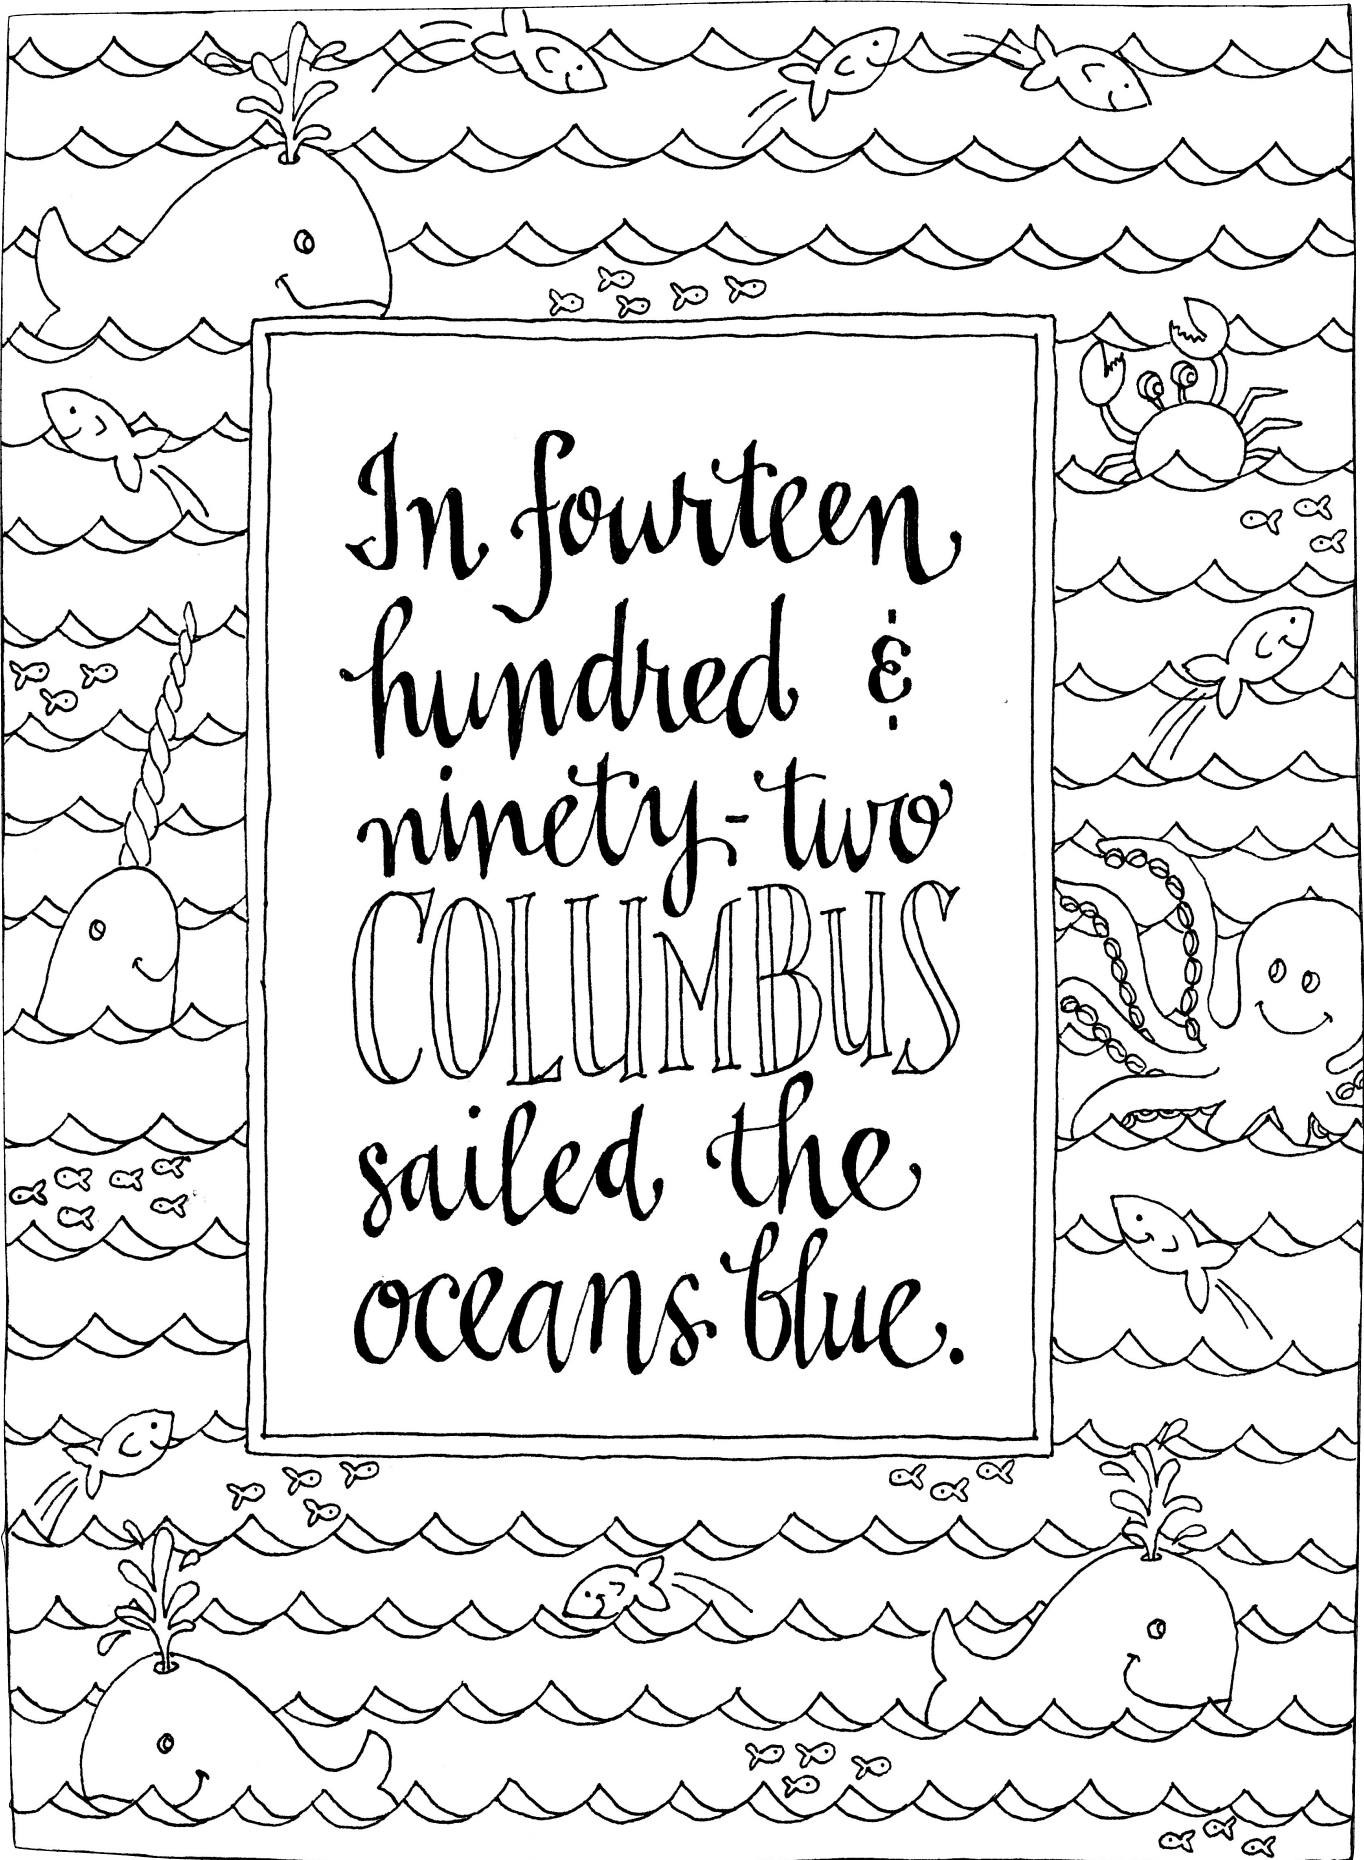 In fourteen
hundred &
ninety-two
COLUMBUS
sailed the
oceans blue.